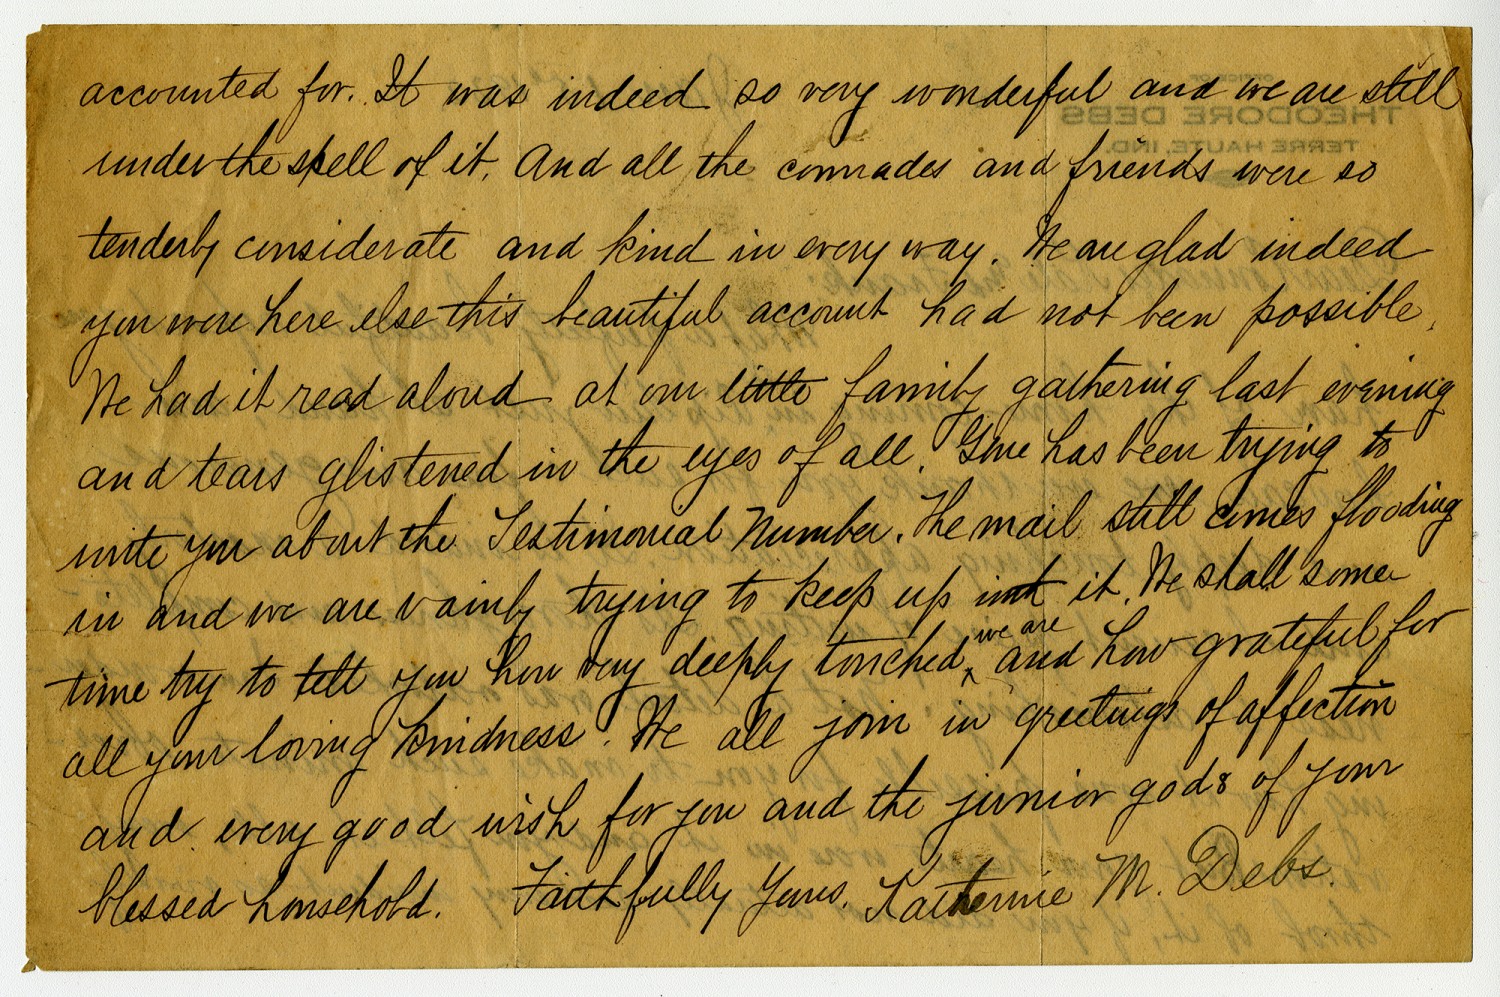 accounted for. It was indeed so very wonderful and we are still
under the spell of it. And all the comrades and friends were so
tenderly considerate and kind in every way. We are glad indeed
you were here else this beautiful account had not been possible.
We had it read aloud at our little family gathering last evening
and tears glistened in the eyes of all. Gene has been trying to
write you about the Testimonial Number. The mail still comes flooding
in and we are vainly trying to keep up with it. We shall some
time try to tell you how very deeply touched we are and how grateful for
all your loving kindness. We all join in greetings of affection
and every good wish for you and the junior gods of your
blessed household. Faithfully Yours, Katherine M. Debs.
THEODORE DEBS
TERRE HAUTE, IND.